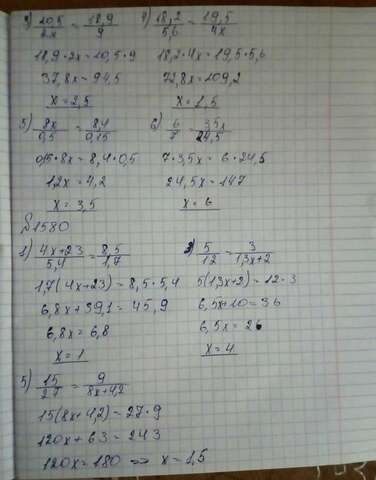 3) 10,5/2x = 18,9/9
18,9·2x = 10,5·9
37,8x = 94,5
x = 2,5
4) 18,2/5,6 = 19,5/4x
18,2·4x = 19,5·5,6
72,8x = 109,2
x = 1,5
5) 8x/0,5 = 8,4/0,15
0,15·8x = 8,4·0,5
1,2x = 4,2
x = 3,5
6) 6/7 = 3,5x/24,5
7·3,5x = 6·24,5
24,5x = 147
x = 6
№1580
1) 4x+23/5,4 = 8,5/1,7
1,7(4x+23) = 8,5·5,4
6,8x+39,1 = 45,9
6,8x = 6,8
x = 1
5/12 = 3/1,3x+2
5(1,3x+2) = 12·3
6,5x+10 = 36
6,5x = 26
x = 4
5) 15/27 = 9/8x+4,2
15(8x+4,2) = 27·9
120x + 63 = 243
120x = 180 => x = 1,5